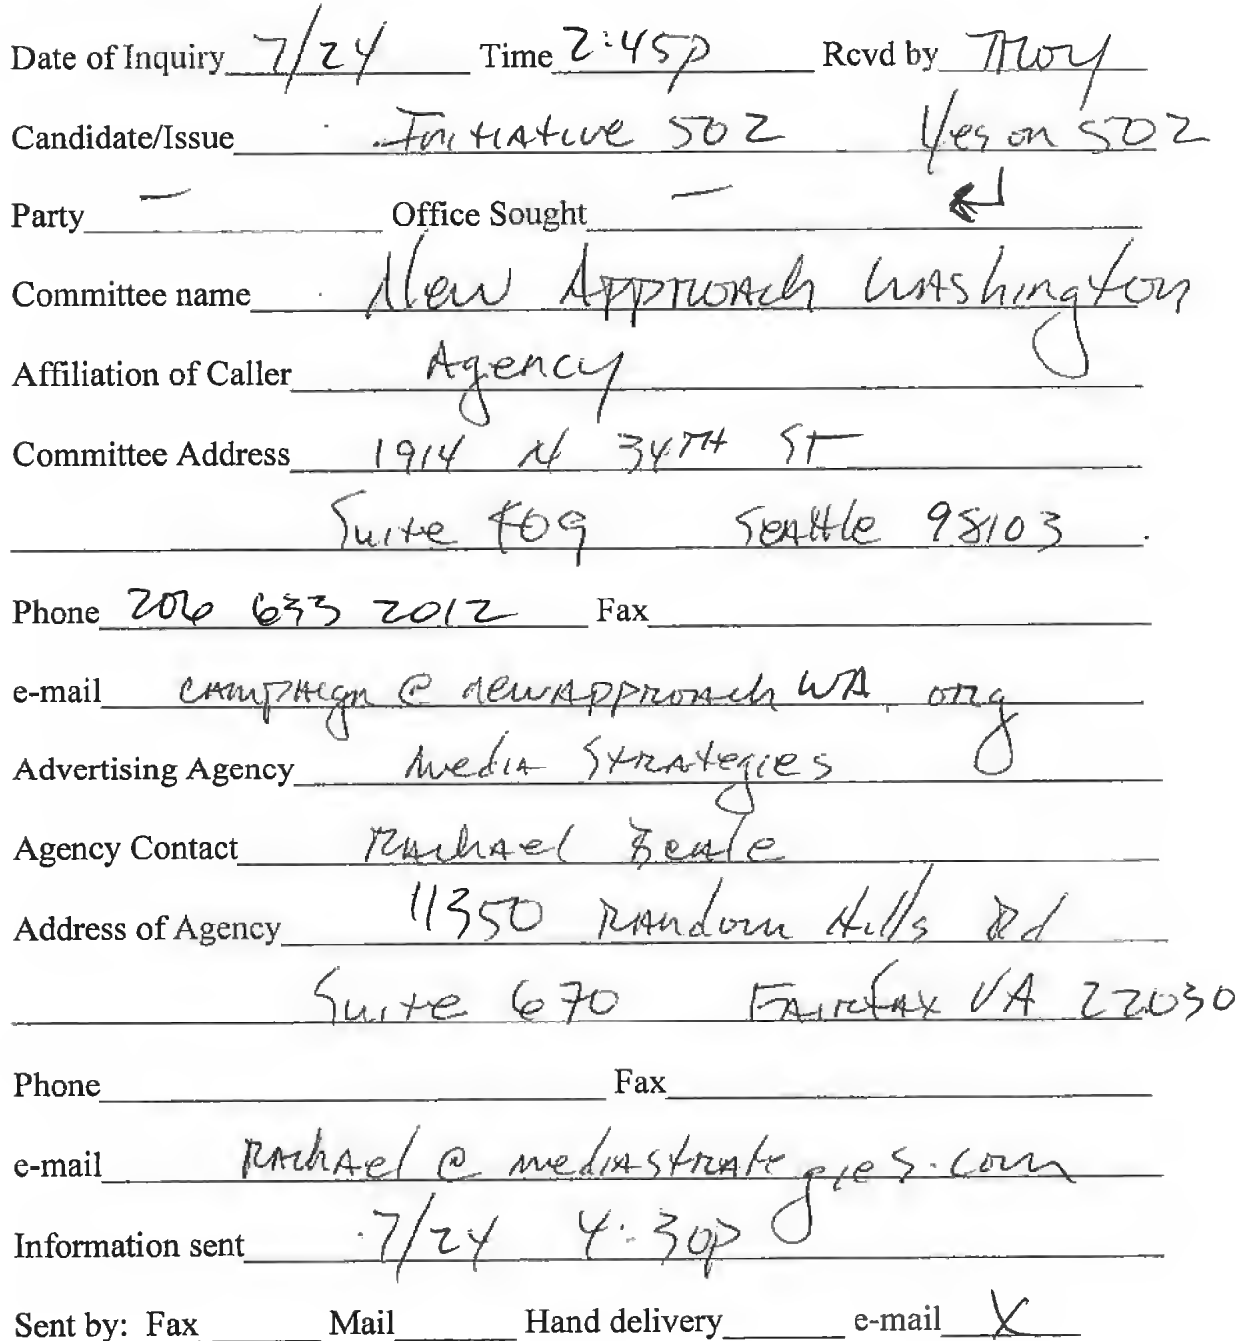 Date of Inquiry 7/24 Time 2:45p Rcvd by Troy
Candidate/Issue Initiative 502 Yes on 502
Party — Office Sought —
Committee name New Approach Washington
Affiliation of Caller Agency
Committee Address 1914 N 34TH ST
Suite 409 Seattle 98103
Phone 206 633 2012 Fax
e-mail campaign @ newapproachWA.org
Advertising Agency Media Strategies
Agency Contact Rachael Beale
Address of Agency 11350 Random Hills Rd
Suite 670 Fairfax VA 22030
Phone Fax
e-mail Rachael @ mediastrategies.com
Information sent 7/24 4:30p
Sent by: Fax Mail Hand delivery e-mail X